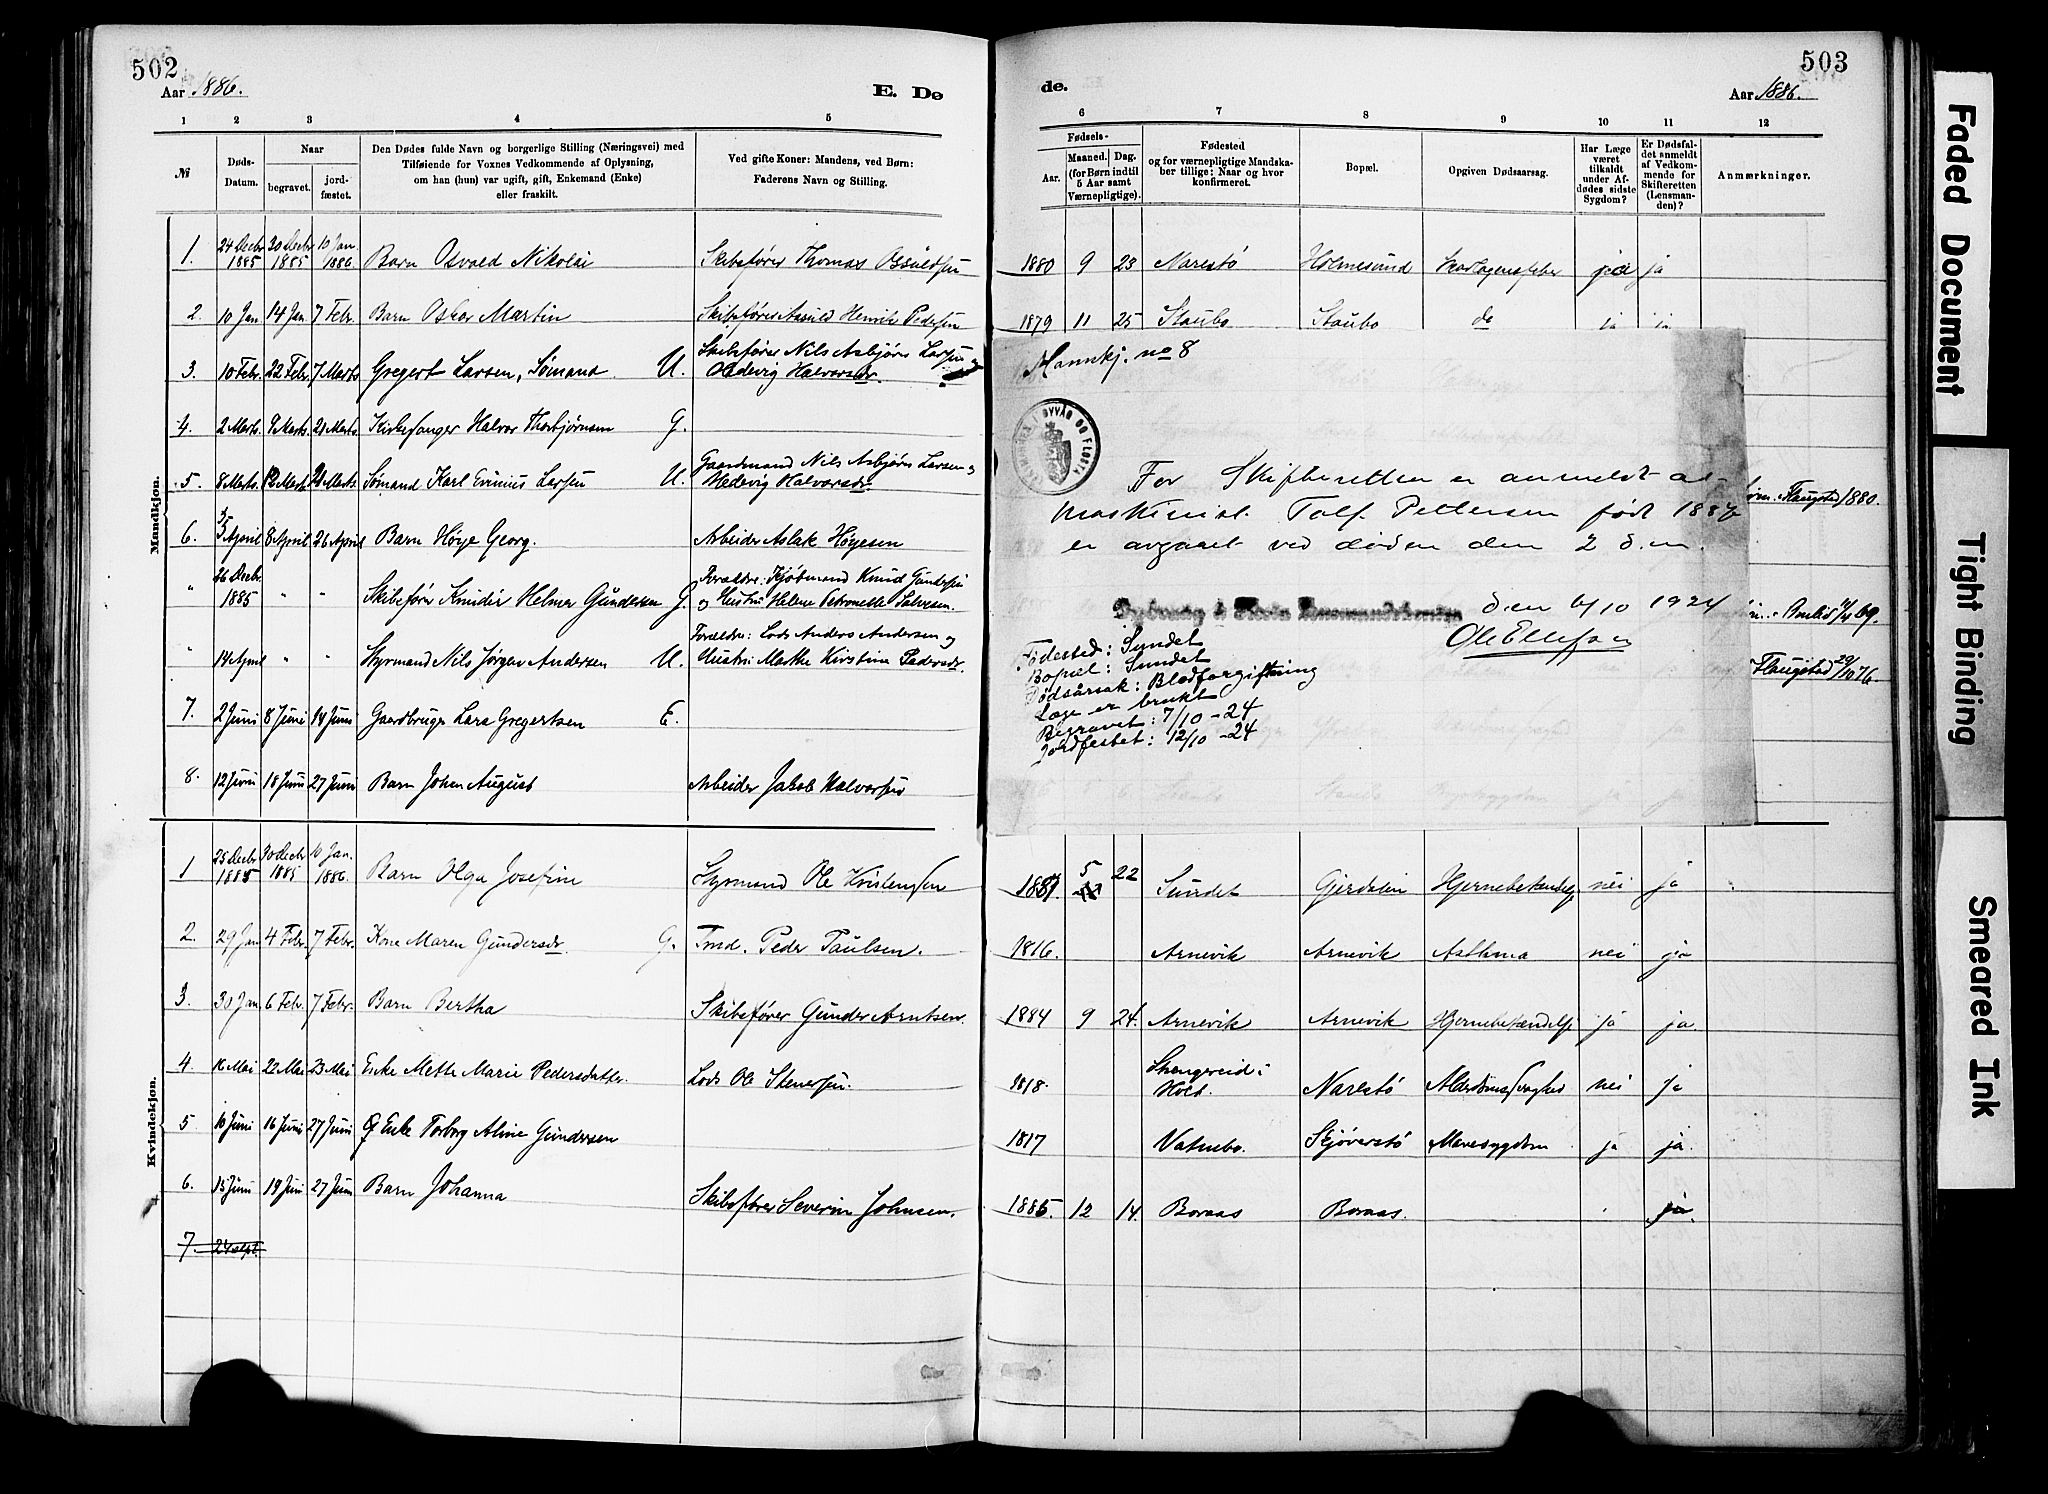 502
Aar 1886.
E. De
1 2 3 4 5
№
Døds-Datum.
Naar
begravet.
jord-fæstet.
Den Dødes fulde Navn og borgerlige Stilling (Næringsvei) med
Tilføiende for Voxnes Vedkommende af Oplysning,
om han (hun) var ugift, gift, Enkemand (Enke)
eller fraskilt.
Ved gifte Koner: Mandens, ved Børn:
Faderens Navn og Stilling.
Mandkjøn.
1. 24 Decbr 1885 30 Decbr 1885 10 Jan. 1886. Barn Osvald Nikolai Skibsfører Thomas Osvaldsen
2. 10 Jan 14 Jan 7 Febr. Barn Oskar Martin Skibsfører Henrik Pedersen
3. 10 Febr. 22 Febr. 7 Marts Gregert Larsen, Sømand. U. Skibsfører Nils Asbjørn Larsen og
Hedvig Halvorsdr.
4. 2 Marts. 9 Marts. 21 Marts. Kirkesanger Halvor Thorbjørnsen G.
5. 8 Marts. 12 Marts 21 Marts Sømand Karl Larsen U. Gaardmand Nils Asbjørn Larsen og
Hedvig Halvorsdr.
6. 5 April 8 April 26 April Barn Høye Georg. Arbeider Aslak Høyesen
" 26 Decbr. 1885 " " Skibsfører Helmer Gundersen G. Forældre: Kjøbmand Knud Gundersen
og Hustru Helene Petronelle Salvesen.
" 14 April " " Styrmand Nils Jørgen Andersen U. Forældre: Lods Anders Andersen og
Hustru Marthe Kirstine Pedersdr.
7. 2 Juni 8 Juni 14 Juni Gaardbruger Lars Gregertsen E.
8. 12 Juni 18 Juni 27 Juni Barn Johan August Arbeider Jakob Halvorsen
Kvindekjøn.
1 25 Decbr 1885 30 Decbr 1885 10 Jan. 1886. Barn Olga Josefine Styrmand Ole Kristensen
2. 29 Jan 4 Febr. 7 Febr. Kone Maren Gundersdr G. Tmd. Peder Paulsen.
3. 30 Jan 6 Febr. 7 Febr. Barn Bertha Skibsfører Gunder Arntsen.
4 16 Mai 22 Mai 23 Mai Enke Mette Marie Pedersdatter. Lods Ole Stenersen.
5 10 Juni 16 Juni 27 Juni Enke Torborg Aline Gundersen
6. 15 Juni 19 Juni 27 Juni Barn Johanna Skibsfører Severin Johnsen.
7. 24 sept.
503
de.
Aar 1886.
6 7 8 9 10 11 12
Fødsels-
Aar.
Maaned. Dag.
(for Børn indtil
5 Aar samt
Værnepligtige).
Fødested
og for værnepligtige Mandska-
ber tillige: Naar og hvor
konfirmeret.
Bopæl.
Opgiven Dødsaarsag.
Har Læge
været
tilkaldt
under Af-
dødes sidste
Sygdom?
Er Dødsfal-
det anmeldt
af Vedkom-
mende for
Skifteretten
(Lensman-
den)?
Anmærkninger.
1880 9 23 Narestø Holmesund Skarlagensfeber ja
1879 11 25 Staubo Staubo do ja ja
Mannkj. no 8
DYVÅG OG FLOSTA
For Skifteretten er anmeldt at
maskinist Tolf Pettersen født 1886
er avgaaet ved døden den 2 d.m.
den 6/10 1924
Ole Ellefsen
Fødested: Sundet
Bopæl: Sundet
Dødsårsak: Blodforgiftning
Læge er brukt
Begravet: 7/10 - 24
Jordfestet: 12/10 - 24
Flaugstad 1880.
69.
Flaugstad 29/10 76
1881. 5 22 Sundet Gjerdalen Hjernebetændelse nei ja
1816. Arnevik Arnevik Asthma nei ja
1884 9 24. Arnevik Arnevik Hjernebetændelse ja ja.
1818. Strengereid i
Holt. Narestø Alderdomssvaghed nei ja
1817 Vatnebo. Skjøverstø Mavesygdom ja ja.
1885 12 14. Boraas Boraas. ja.
Faded Document
Tight Binding
Smeared Ink